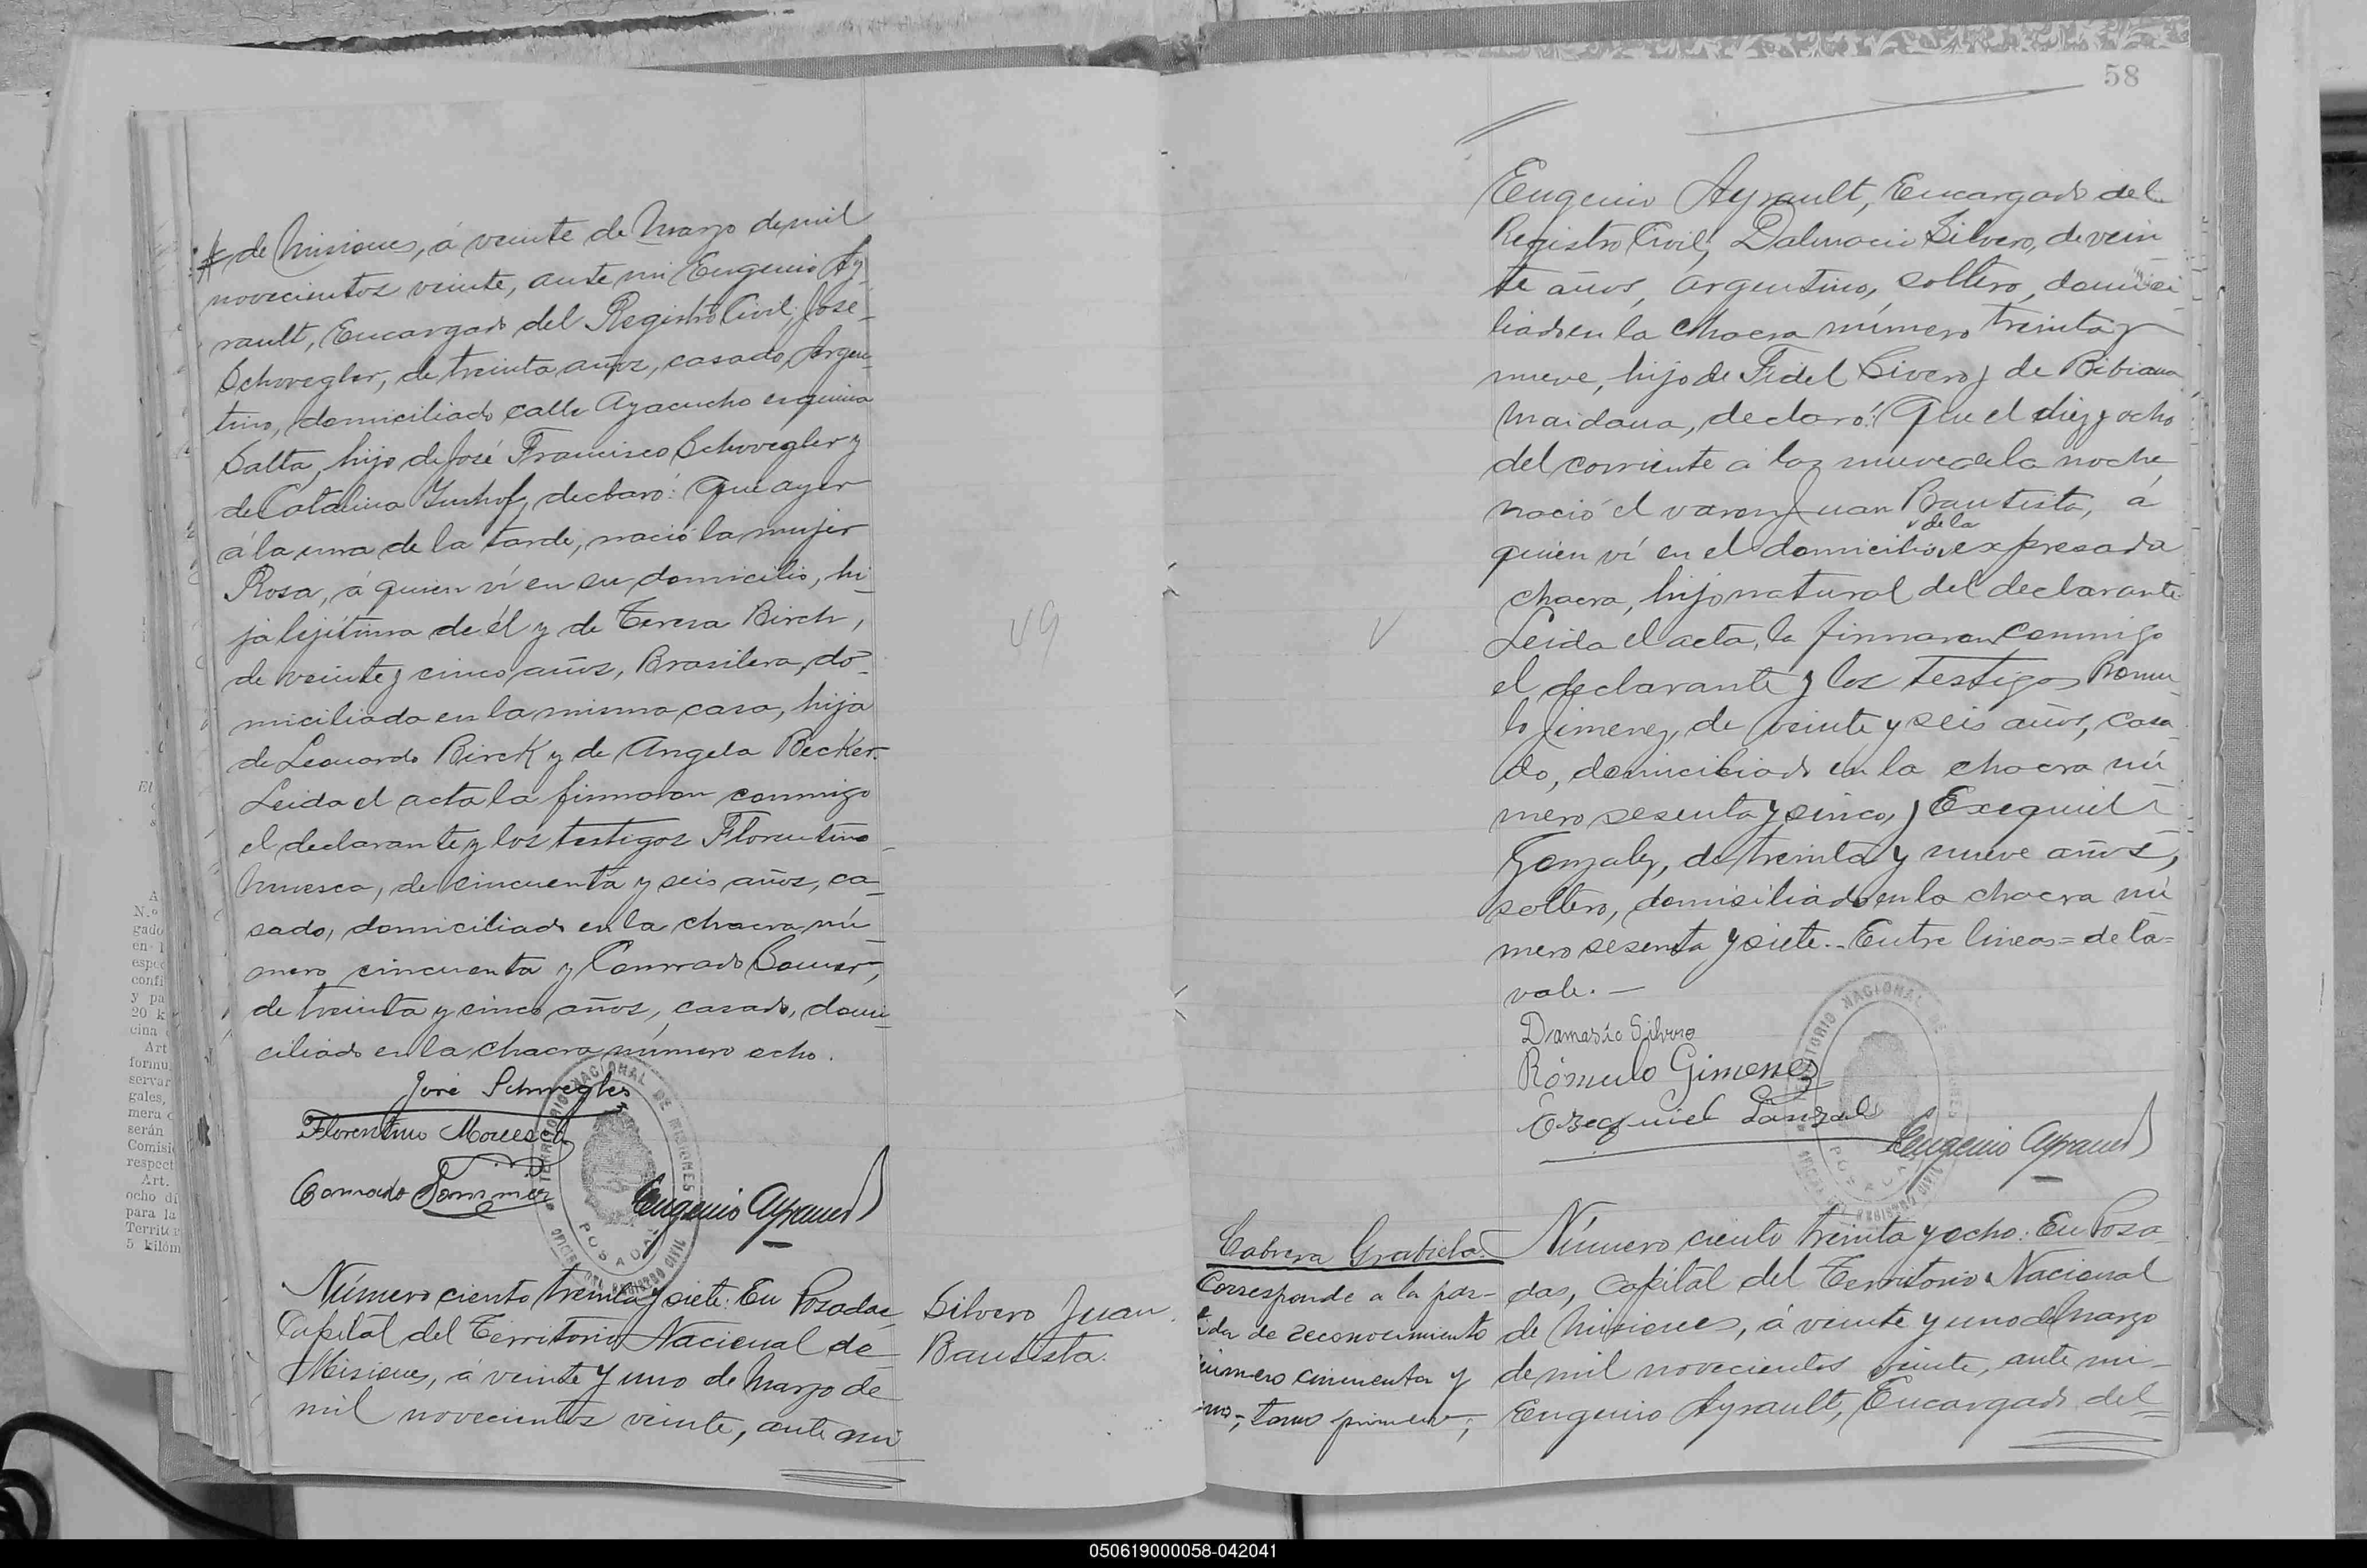 de Misiones, á veinte de Marzo de mil
novecientos veinte, ante mi Eugenio Ay-
rault, Encargado del Registro Civil; José
Schvegler, de treinta años, casado, Argen-
tino, domiciliado calle Ayacucho esquina
Salta, hijo de José Francisco Schvegler y
de Catalina declaró: Que ayer
á la una de la tarde, nació la mujer
Rosa, á quien ví en su domicilio, hi-
ja lejítima de él y de Teresa Birch,
de veinte y cinco años, Brasilera, do-
miciliada en la misma casa, hija
de Leonardo Birck y de Angela Becker.
Leida el acta la firmaron conmigo
el declarante y los testigos Florentino
de cincuenta y seis años, ca-
sado, domiciliado en la chacra nú-
mero cincuenta y Conrrado
de treinta y cinco años, casado, domi-
ciliado en la chacra número ocho.
José Schwegler
Florentino
Conrado
Eugenio Ayrault
TERRITORIO NACIONAL DE MISIONES
POSADAS
OFICINA DEL REGISTRO CIVIL
Número ciento treinta y siete: En Posadas,
Capital del Territorio Nacional de
Misiones, á veinte y uno de Marzo de
mil novecientos veinte, ante mi
Silvero Juan
Bautista.
49
58
Eugenio Ayrault, Encargado del
Registro Civil; Dalmacio Silvero, de vein
te años, argentino, soltero, domici
liado en la chacra número treinta y
nueve, hijo de Fidel Sivero y de Bibiana
Maidana, declaró: Que el diez y ocho
del corriente a las nueve de la noche,
nació el varon Juan Bautista, á
de la
quien ví en el domicilio expresada
chacra, hijo natural del declarante
Leida el acta, la firmaron conmigo
el declarante y los testigos Romu-
lo Jimenez, de veinte y seis años, casa-
do, domiciliado en la chacra nú
mero sesenta y cinco, y Exequiel
Gonzalez, de treinta y nueve años,
soltero, domisiliado en la chacra nú
mero sesenta y siete.- Entre lineas = de la =
vale.-
Damasio Silvero
Rómulo Gimenez
Ezequiel
Eugenio Ayrault
TERRITORIO NACIONAL DE MISIONES
POSADAS
OFICINA DEL REGISTRO CIVIL
Cabrera Grabiela.
Corresponde a la par-
tida de reconocimiento
número cincuenta y
uno, tomo primero,
Número ciento treinta y ocho: En Posa
das, Capital del Territorio Nacional
de Misiones, á veinte y uno de Marzo
de mil novecientos veinte, ante mi
Eugenio Ayrault, Encargado del
050619000058-042041